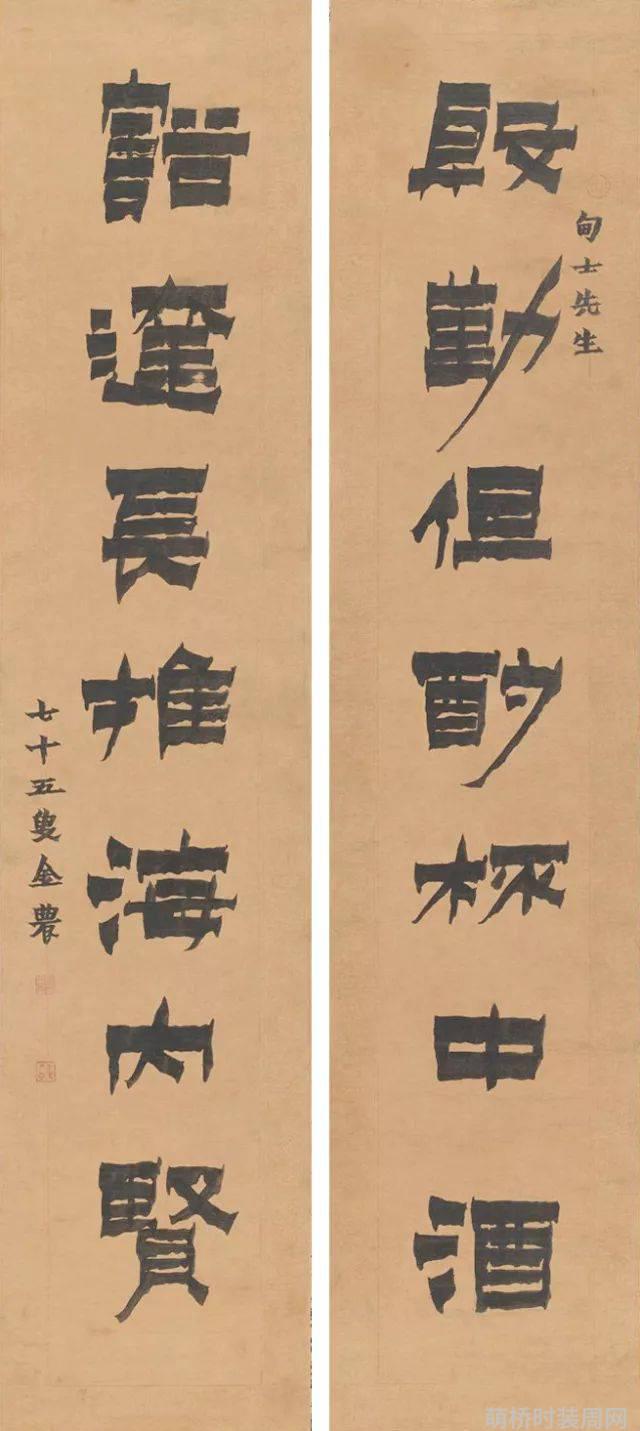 殷勤但酌杯中酒
甸士先生
豁達長推海内賢
七十五叟金農
萌桥时装周网